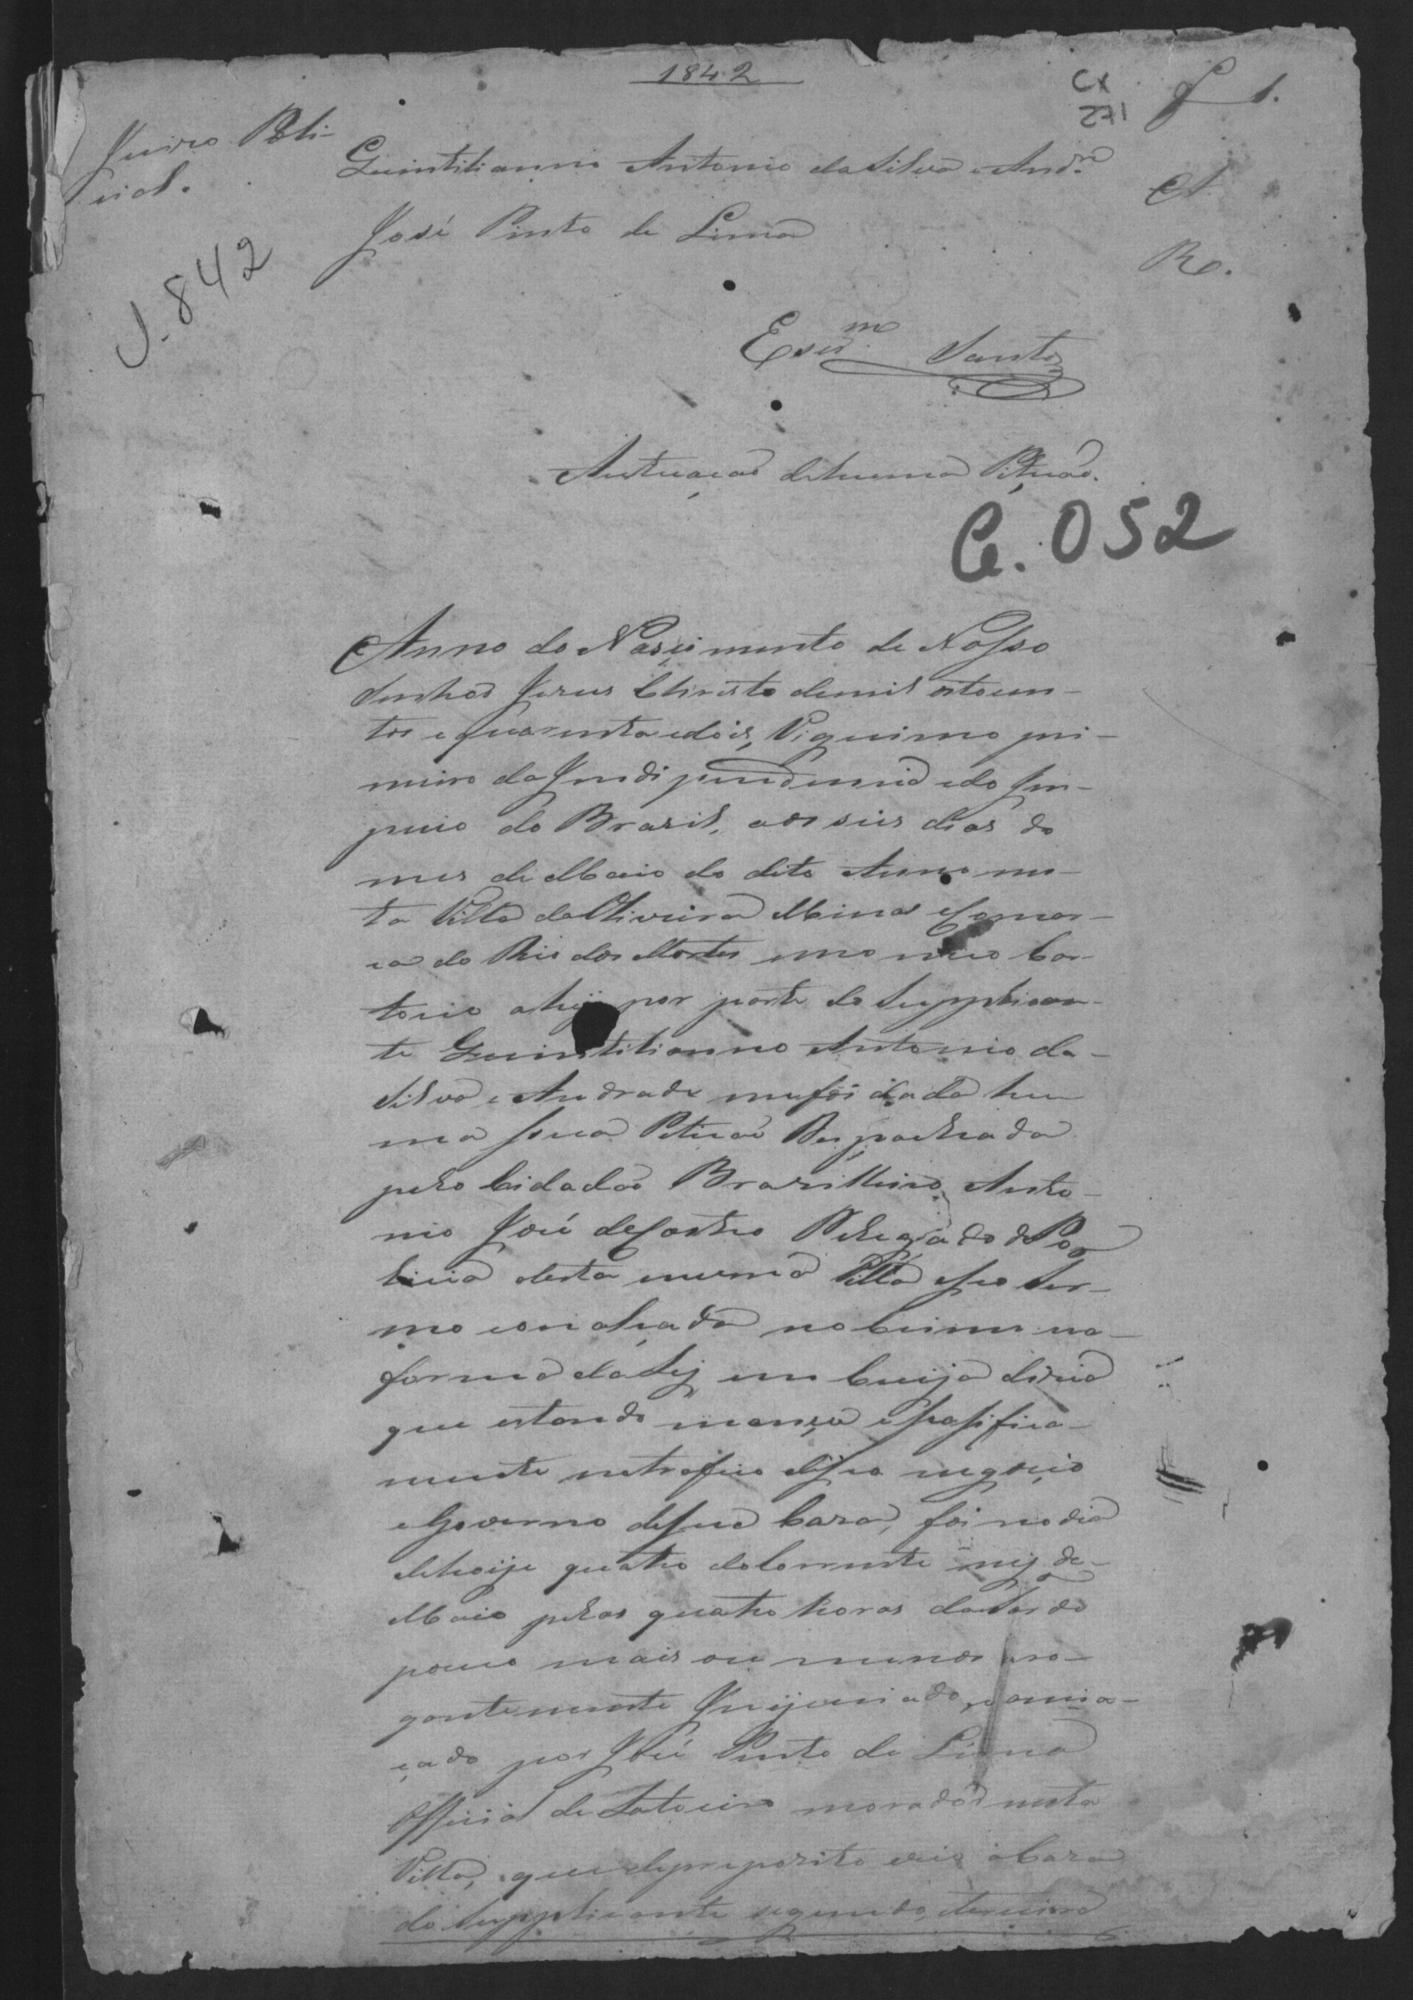 1842
Cx
271
f 1.
Juizo Poli-
cial.
Guintilianno Antonio da Silva e Andr.e
A.
José Pinto de Lima
R.
J. 842
Escr.m Santos
Autuação de huma Petição.
Cr. 052
Anno do Nascimento de Nosso
Senhor Jesus Christo de mil oitocen-
tos e quarenta e dois, Viguimo pri-
meiro da Independencia e do Im-
perio do Brasil, aos seis dias do
mes de Maio do dito Anno nes-
ta Villa de Oliveira Minas e Comar-
ca do Rio das Mortes em o meo Car-
torio ahi por parte do Supplican-
te Guintilianno Antonio da
Silva e Andrade me foi dada hu-
ma sua Petição Despachada
pelo Cidadão Brazilleiro Anto-
nio José de Castro Delegado de Po-
licia desta mesma Villa e seo Ter-
mo com alçada no Crime na
forma da Lej em cuija dizia
que estando manço e passifica-
mente no trafico de seo negocio
e Governo de sua Caza, foi no dia
de hoije quatro do Corrente mez de
Maio pelas quatro horas da Tarde
pouco mais ou menos aro-
gantemente Injuriado, e amia-
çado por José Pinto de Lima
Official de Latoeiro morador nesta
Villa, que de preposito veio a Caza
do Supplicante segundo, terceira